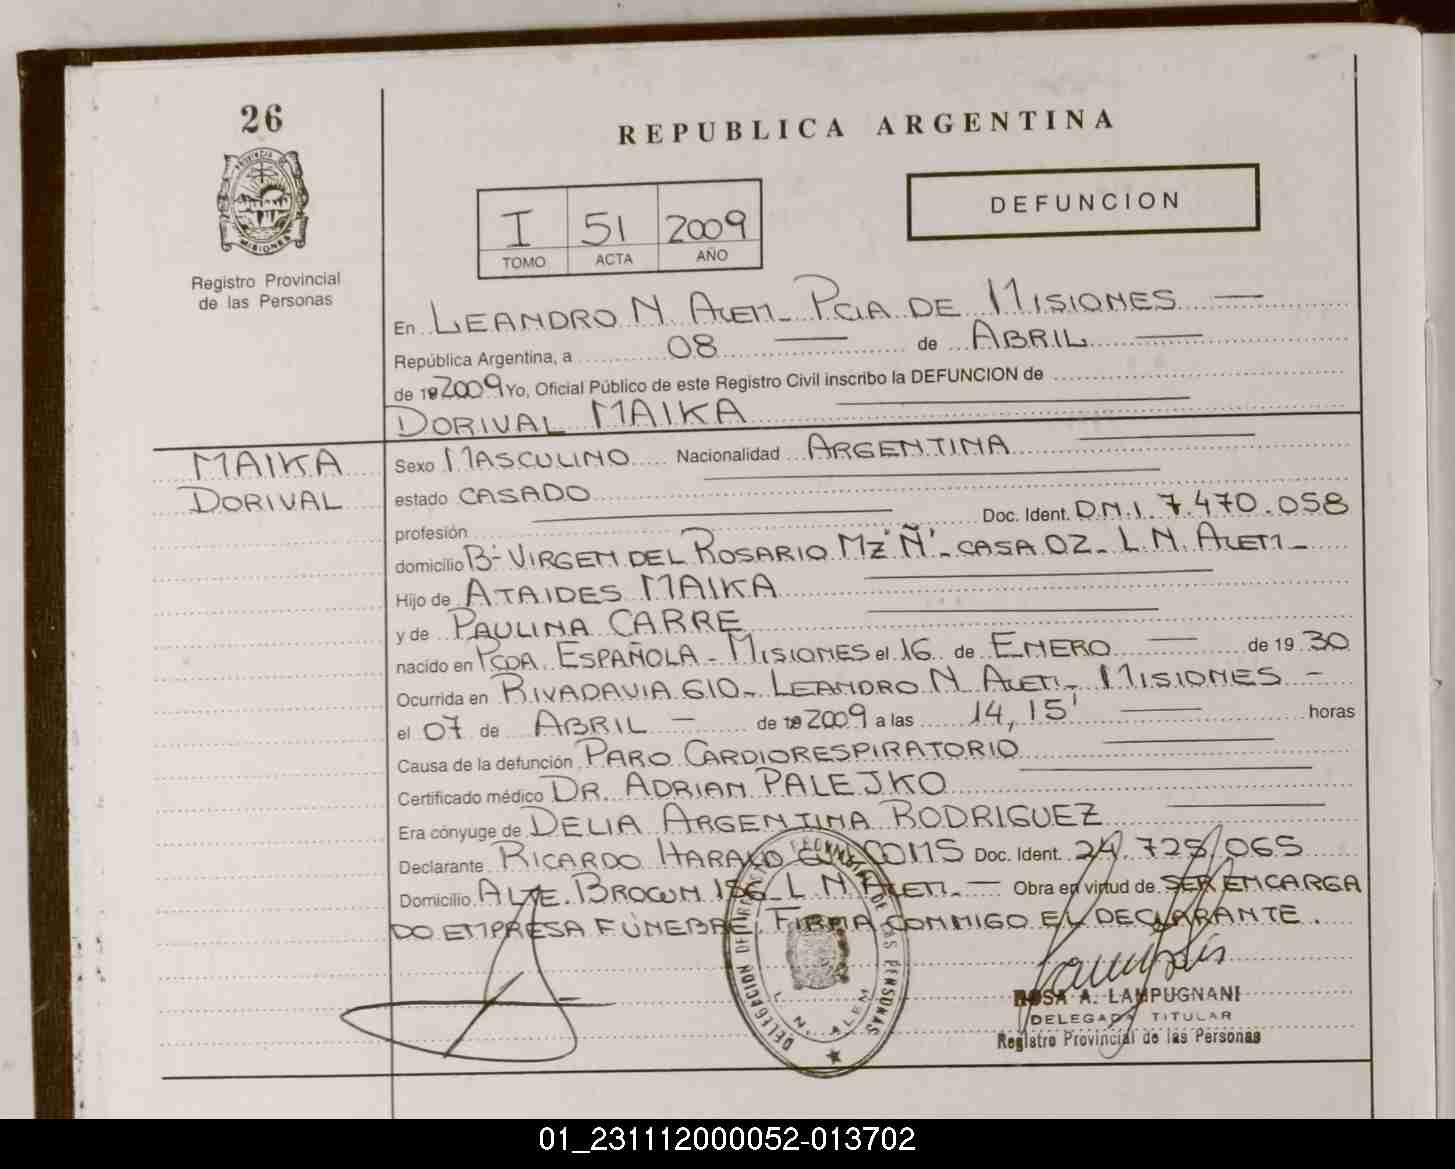 26
REPUBLICA ARGENTINA
PROVINCIA DE MISIONES
Registro Provincial
de las Personas
I 51 2009
TOMO ACTA AÑO
DEFUNCION
En LEANDRO N. ALEM - PCIA DE MISIONES
República Argentina, a 08 de ABRIL
de 2009 Yo, Oficial Público de este Registro Civil inscribo la DEFUNCION de
DORIVAL MAIKA
MAIKA
DORIVAL
Sexo MASCULINO Nacionalidad ARGENTINA
estado CASADO
profesión Doc. Ident. D.N.I. 7.470.058
domicilio B- VIRGEN DEL ROSARIO MZ "Ñ" - CASA 02 - L.N. ALEM -
Hijo de ATAIDES MAIKA
y de PAULINA CARRE
nacido en PCDA. ESPAÑOLA - MISIONES el 16 de ENERO de 19 30
Ocurrida en RIVADAVIA 610 - LEANDRO N. ALEM - MISIONES -
el 07 de ABRIL - de 2009 a las 14,15' horas
Causa de la defunción PARO CARDIORESPIRATORIO
Certificado médico DR. ADRIAN PALEJKO
Era cónyuge de DELIA ARGENTINA RODRIGUEZ
Declarante RICARDO HARALD Doc. Ident. 24.725.065
Domicilio ALTE. BROWN 156 - L N ALEM - Obra en virtud de SER ENCARGA
DO EMPRESA FÚNEBRE. FIRMA CONMIGO EL DECLARANTE.
DELEGACION DEL REGISTRO DE LAS PERSONAS
L. N. ALEM
ROSA A. LAMPUGNANI
DELEGADA TITULAR
Registro Provincial de las Personas
01_231112000052-013702